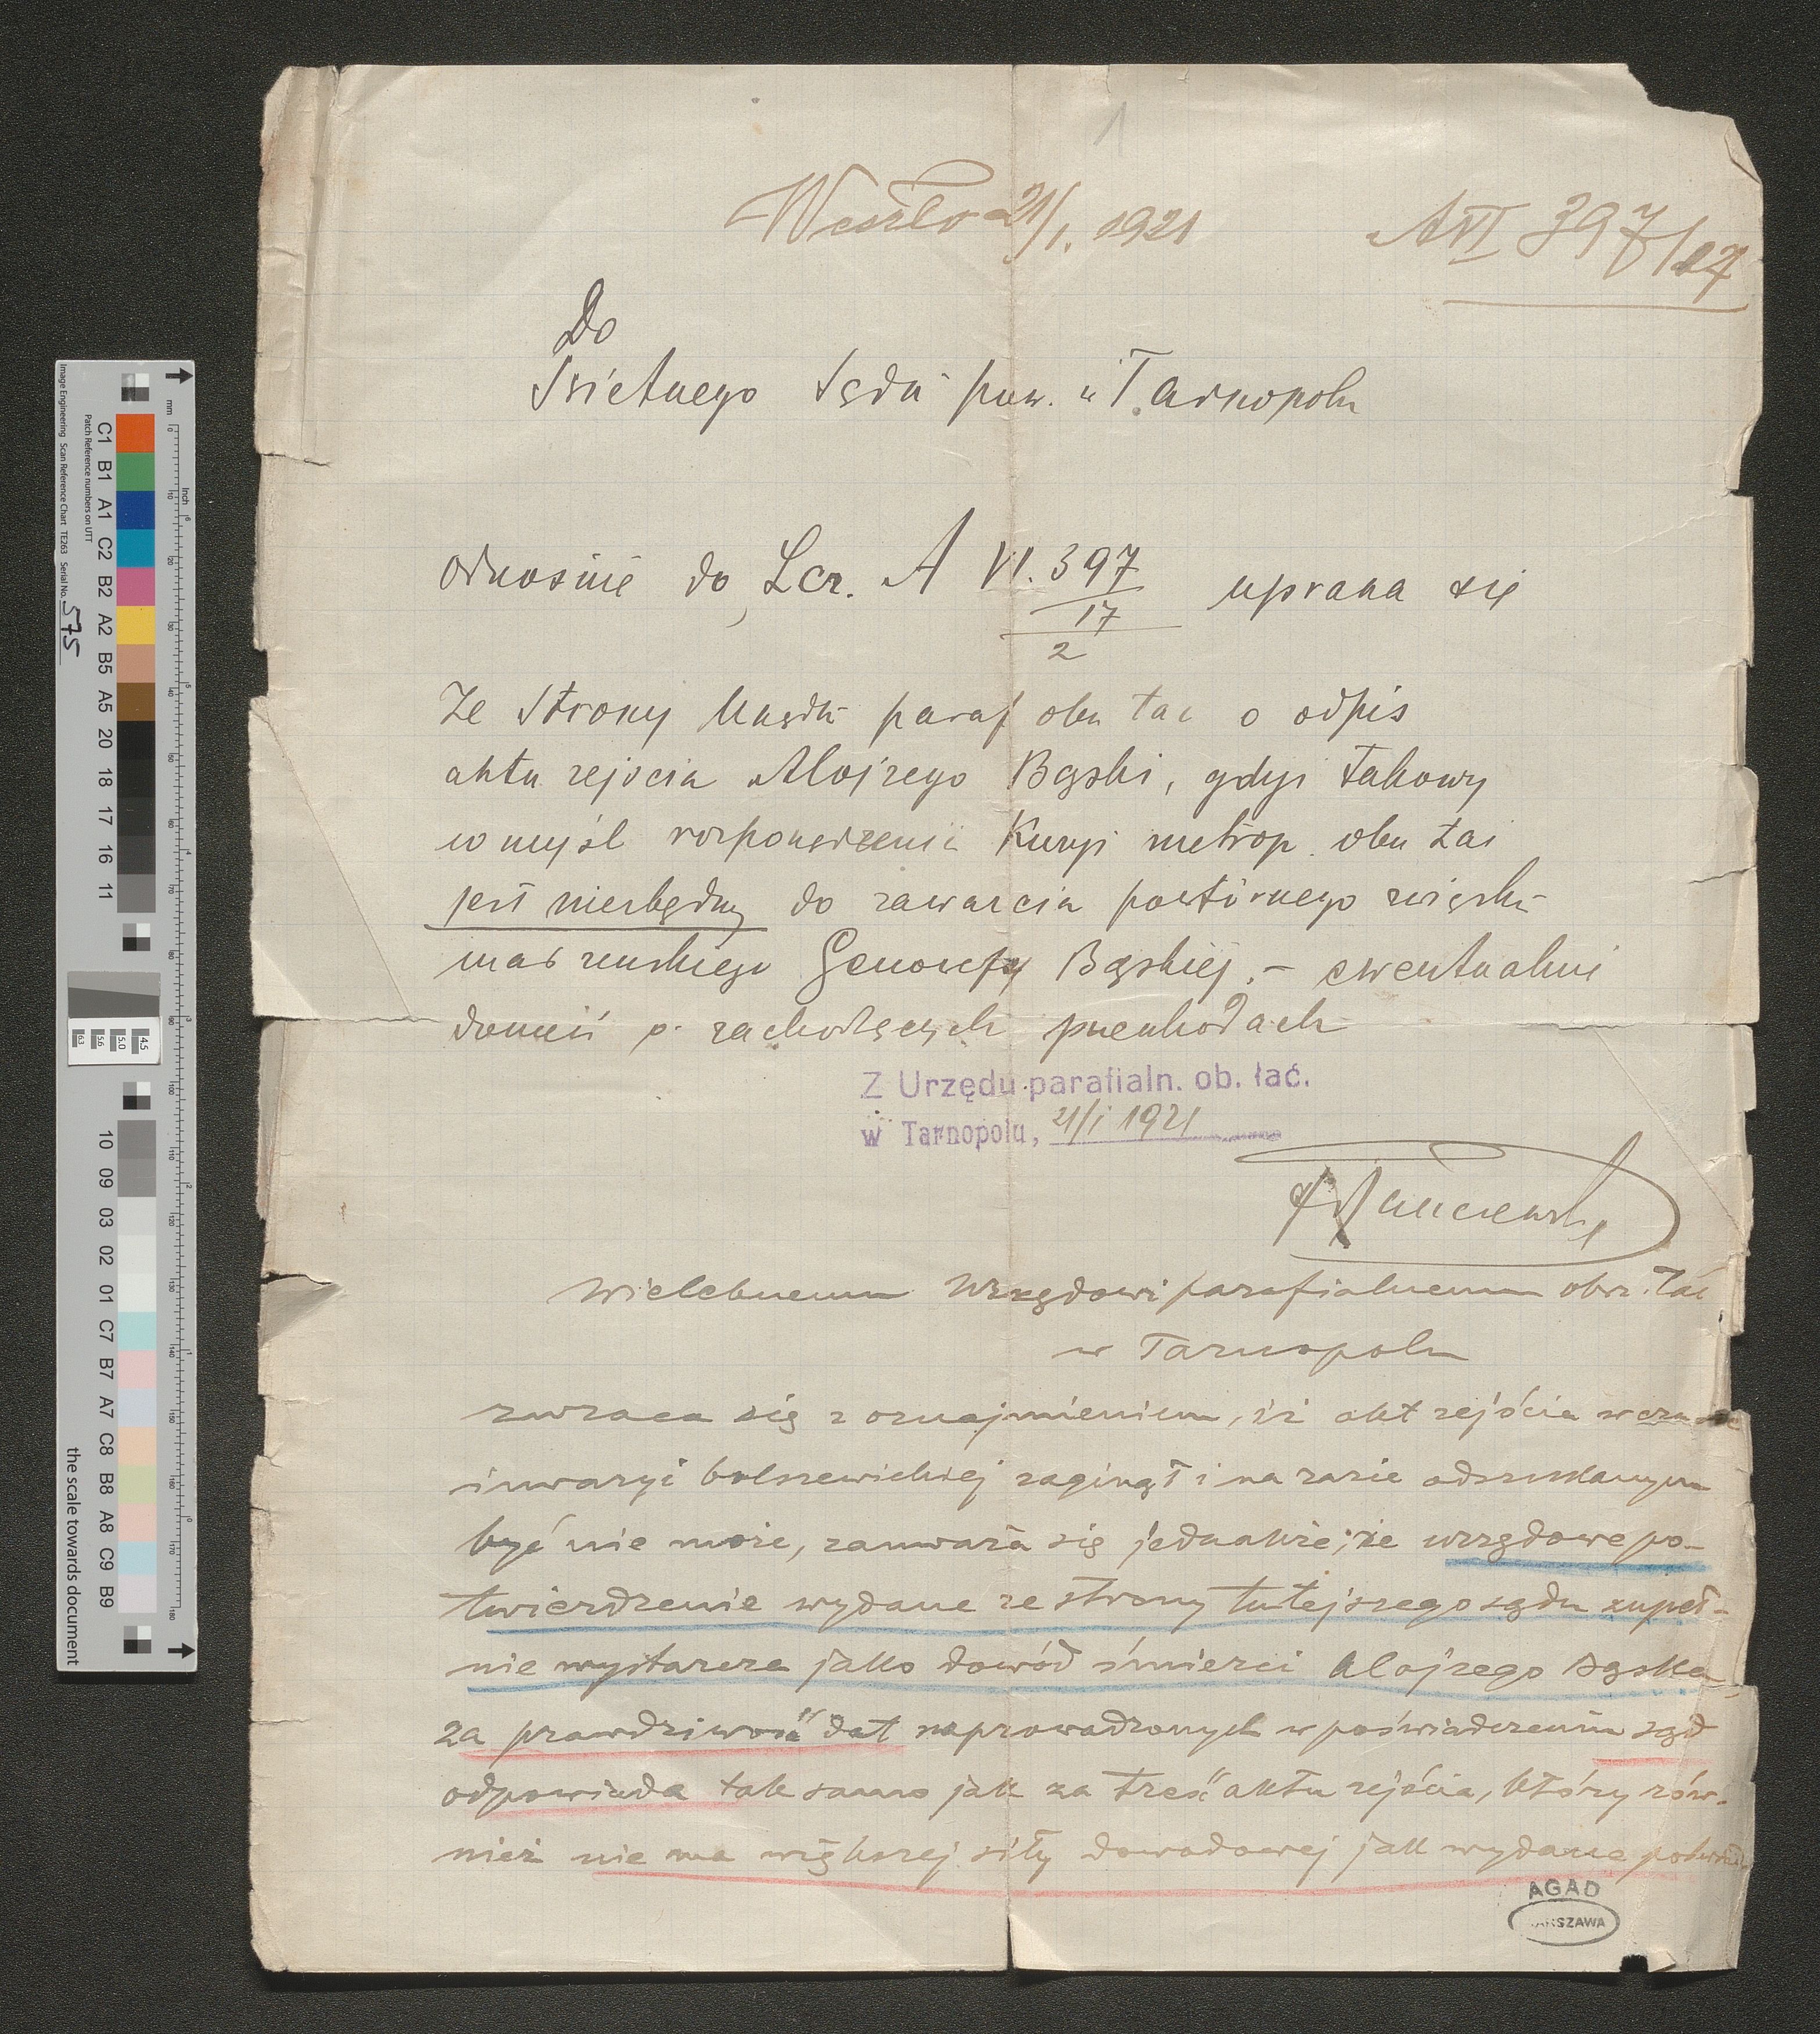 1
Weszło 21/I. 1921 A VI 397/17
Do
Świetnego Sądu pow. w Tarnopolu
odnośnie do Lcz. A VI. 397/17/2 uprasza się
ze strony Urzędu paraf obn łac o odpis
aktu zejścia Alojzego Bąski, gdyż takowy
w myśl rozporządzenia Kuryi metrop. obn łac
jest niezbędny do zawarcia powtórnego związku
małżeńskiego Genowefy Bąskiej. – ewentualnie
donieść o zachodzących przeszkodach
Z Urzędu parafialn. ob. łać.
w Tarnopolu, 21/I 1921
Wielebnemu Urzędowi parafialnemu obrz. łac
w Tarnopolu
zwraca się z oznajmieniem, iż akt zejścia w czasie
inwazyi bolszewickiej zaginął i na razie odszukanym
być nie może, zauważa się jednakże, że urzędowe po-
twierdzenie wydane ze strony tutejszego sądu zupeł-
nie wystarcza jako dowód śmierci Alojzego Bąska,
za prawdziwość dat naprowadzonych w poświadczeniu sąd
odpowiada tak samo jak za treść aktu zejścia, który rów-
nież nie ma większej siły dowodowej jak wydane
AGAD
WARSZAWA
Image Engineering Scan Reference Chart TE263 Serial No. 575
Patch Reference numbers on UTT
C1 B1 A1 C2 B2 A2 B5 A5 20 18 17 16 11
10 09 03 02 01 C7 B7 A7 C8 B8 A8 C9 B9
mm
inch
the scale towards document